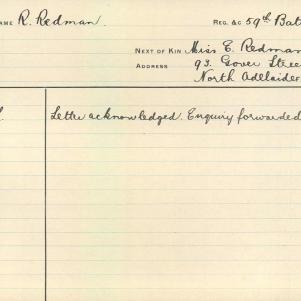 NAME R. Redman. REG. &C 59th Bat
NEXT OF KIN Miss E. Redman
ADDRESS 93. Gover Stree
North Adelaide
Letter acknowledged. Enquiry forwarded